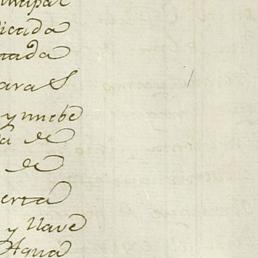 ncipal
icada
tada
para S
y nuebe
a de
de
erta
y llave
y Agua